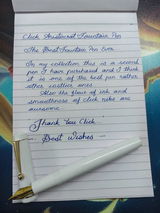 Click Aristocrat Fountain Pen
The Best Fountain Pen Ever
In my collection this is a second
pen I have purchased and I think
it is one of the best pen rather
other costlier ones.
Also the flow of ink and
smoothness of click nibs are
awesome
Thank You Click
Best Wishes